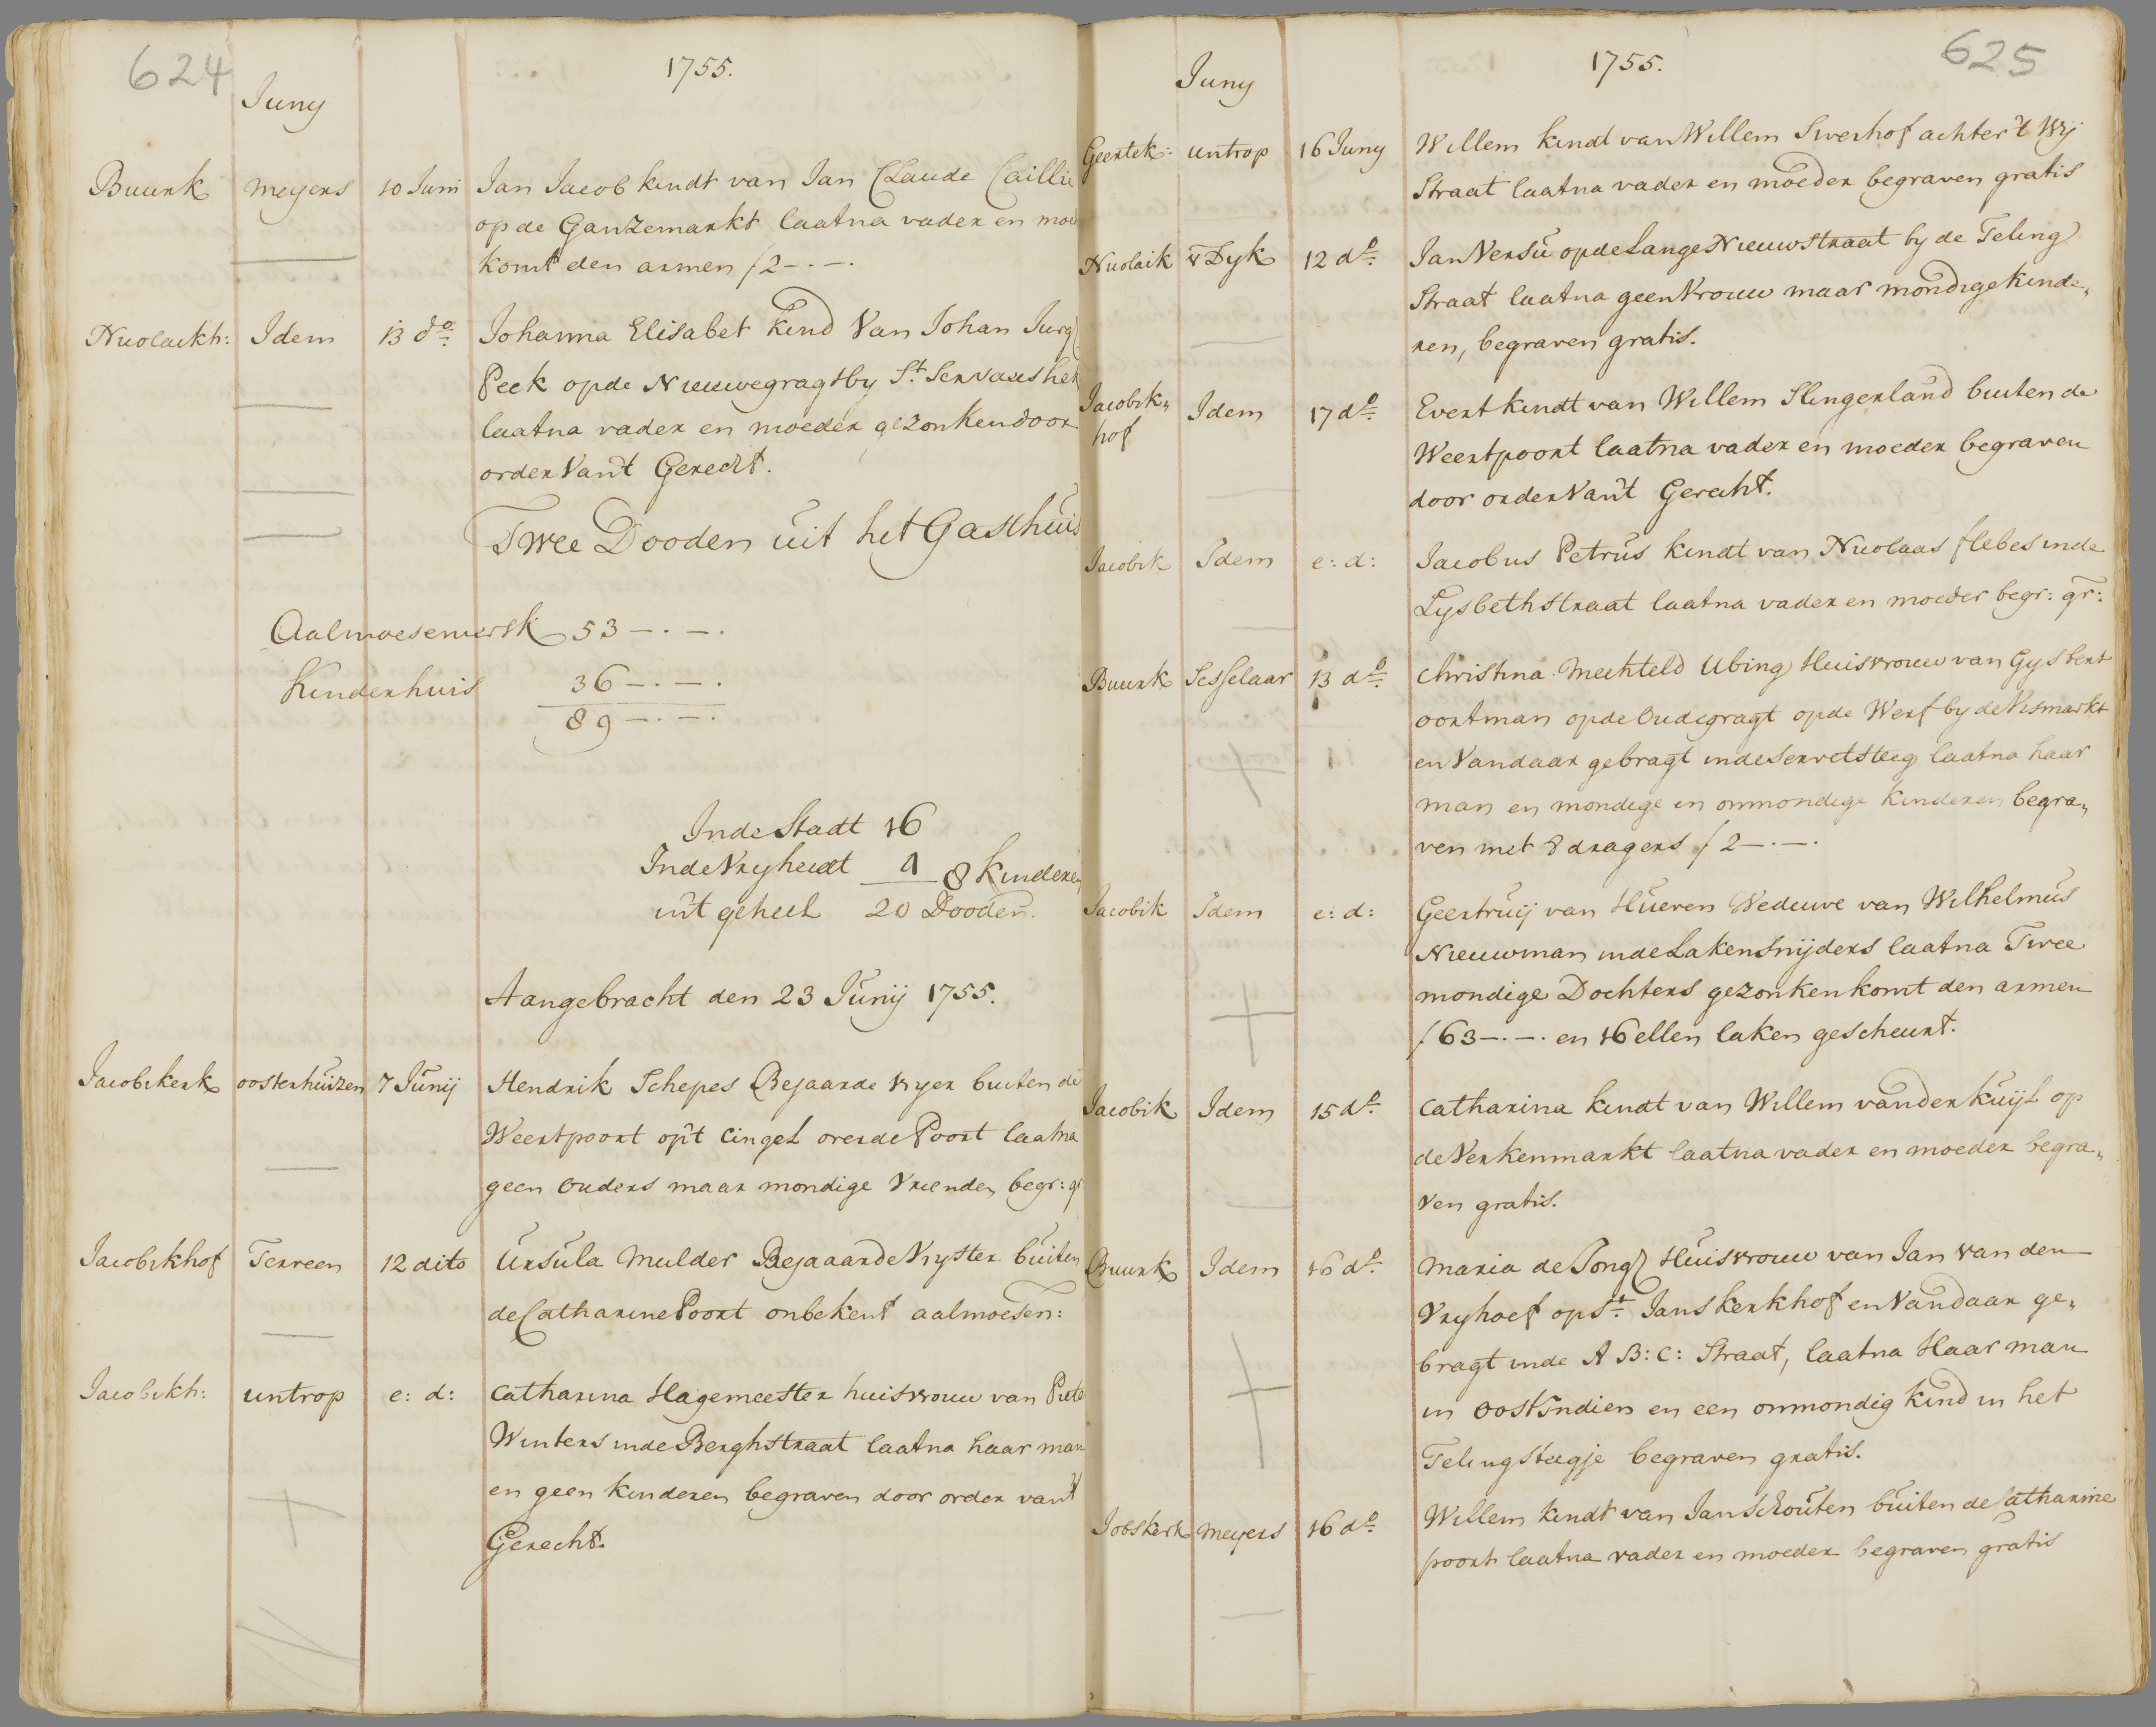 624
1755.
Juny
Buurk meyers 10 Juni Jan Jacob kindt van Jan Claude Caillie
op de Ganzemarkt laatna vader en moe
komt den armen ƒ 2-.-.
Nicolaikh: Idem 13 do. Johanna Elisabet kind Van Johan Jurg
Peek opde Nieuwegragt by St. Servaas hek
laatna vader en moeder gezonken door
order Van't Gerecht.
Twee Dooden uit het Gasthuis
Aalmoeseniersk 53-.-.
Kinderhuis 36-.-.
89-.-.
Inde Stadt 16
Inde Vryheidt 4 8 kinderen
in't geheel 20 Dooden.
Aangebracht den 23 Junij 1755.
Jacobikerk oosterhuizen 7 Junij Hendrik Schepes Bejaarde vryer buiten de
Weertpoort op't Cingel over de Poort laatna
geen Ouders maar mondige Vrienden begr: gr
Jacobikhof Terveen 12 dito Ursula Mulder Bejaaarde Vryster buiten
de Catharine Poort onbekent aalmoesen:
Jacobikh: untrop e: d: Catharina Hagemeester huisvrouw van Piete
Winters inde Berghstraat laatna haar man
en geen kinderen begraven door order van't
Gerecht.
625
1755.
Juny
Geertek: untrop 16 Juny Willem kindt van Willem Swerhof achter 't Wy
Straat laatna vader en moeder begraven gratis
Nicolaik v Dyk 12 do. Jan Versu opde Lange Nieuwstraat by de Teling
Straat laatna geen Vrouw maar mondige kinde„
ren, begraven gratis.
Jacobik„
hof Idem 17 do. Evert kindt van Willem Slingerland buiten de
Weertpoort laatna vader en moeder begraven
door order Van't Gerecht.
Jacobik Idem e: d: Jacobus Petrus kindt van Nicolaas flebes inde
Lysbethstraat laatna vader en moeder begr: gr:
Buurk Sesselaar 13 do. Christina Mechteld Ubing Huisvrouw van Gysbert
oortman opde Oudegragt opde Werf by de Vismarkt
en Vandaar gebragt inde Servetsteeg laatna haar
man en mondige en onmondige kinderen begra„
ven met 8 dragers ƒ 2-.-.
Jacobik Idem e: d: Geertruij van Hueven Weduwe van Wilhelmus
Nieuwman inde Lakensnijders laatna Twee
mondige Dochters gezonken komt den armen
ƒ 63-.-. en 16 ellen laken gescheurt.
Jacobik Idem 15 do. Catharina kindt van Willem vander Kuijl op
de Verkenmarkt laatna vader en moeder begra„
ven gratis.
Buurk Idem 16 do. Maria de Jong Huisvrouw van Jan van den
Vryhoef op St. Janskerkhof en Vandaar ge„
bragt inde A B: C: Straat, laatna Haar man
in OostIndien en een onmondig kind in het
Telingsteegje begraven gratis.
Jobskerk meyers 16 do. Willem kindt van Jan Schouten buiten de Catharine
poort laatna vader en moeder begraven gratis